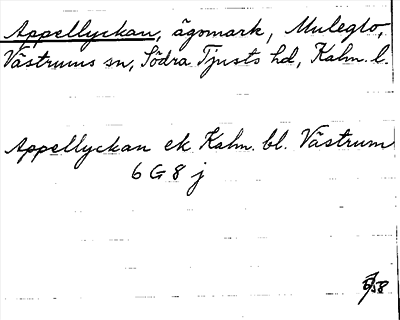 Appellyckan, ägomark, Mulegto,
Västrums sn, Södra Tjusts hd, Kalm. l.
Appellyckan ek. Kalm. bl. Västrum
6 G 8 j